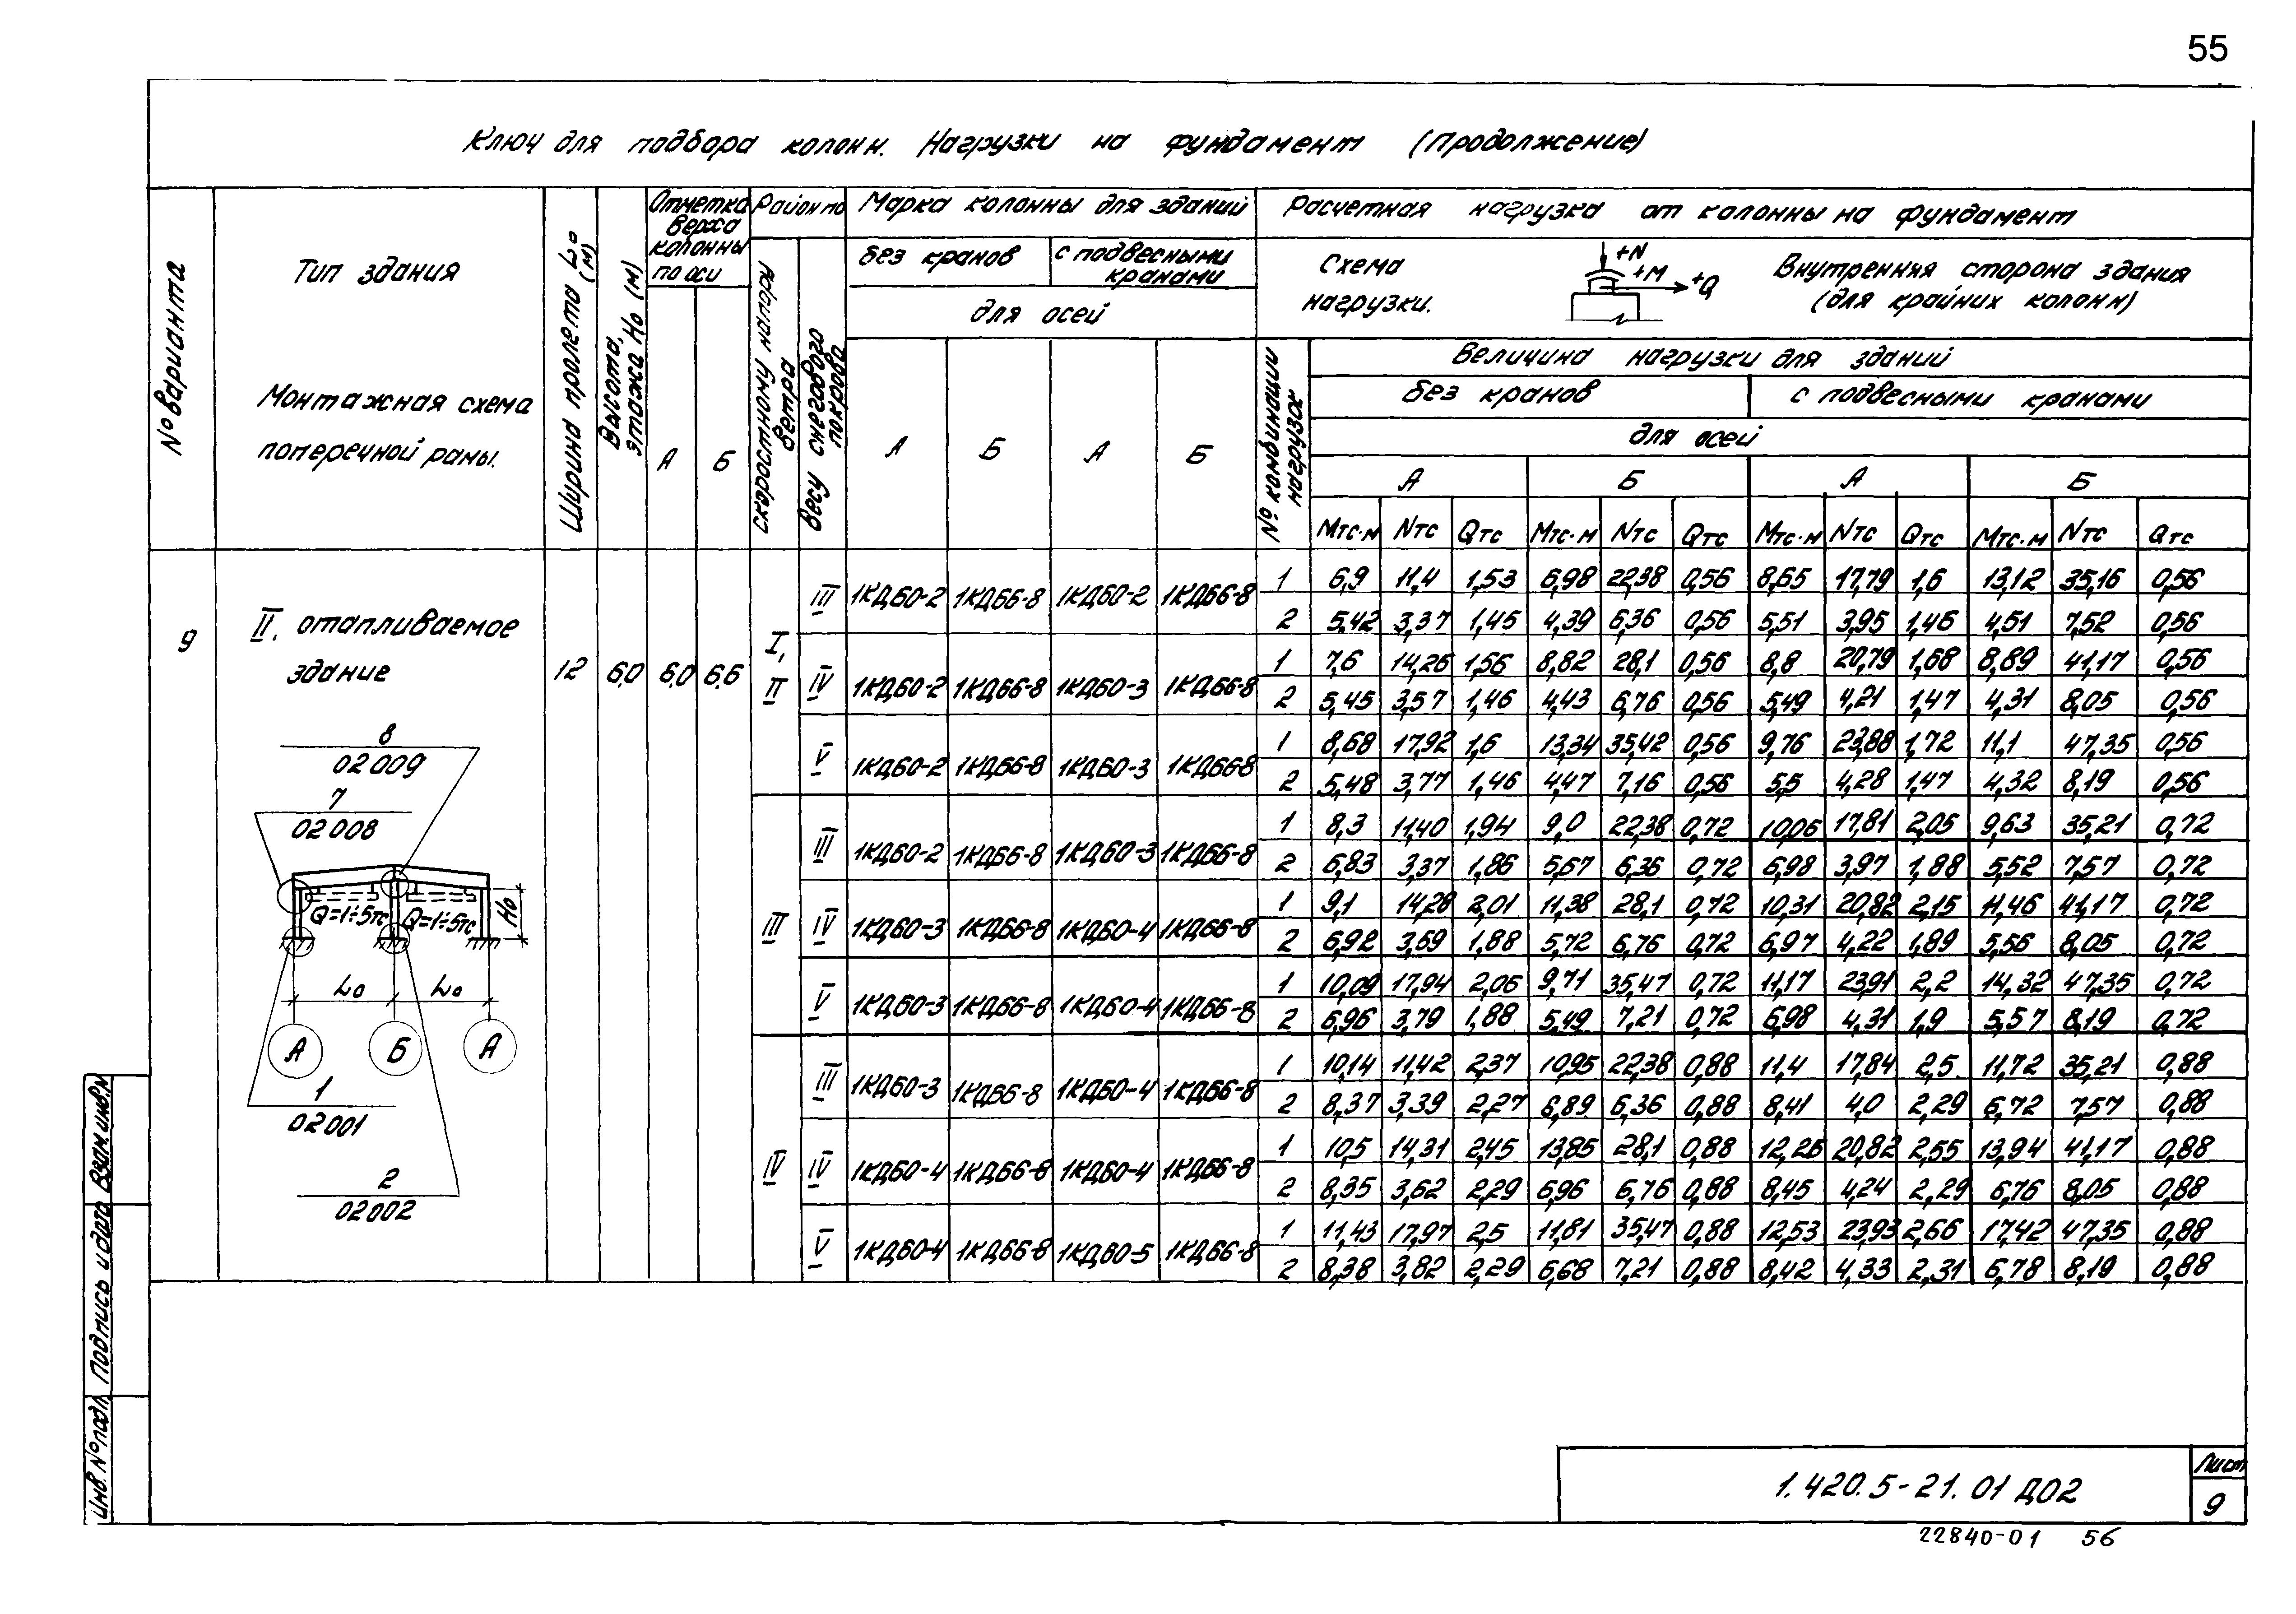 55
Ключ для подбора колонн. Нагрузки на фундамент (Продолжение)
№ варианта
Тип здания
Монтажная схема
поперечной рамы.
Ширина пролета L₀ (м)
Высота,
этажа H₀ (м)
Отметка
верха
колонны
по оси
А Б
Район по
скоростному напору
ветра
весу снегового
покрова
Марка колонны для зданий
без кранов
с подвесными
кранами
для осей
А Б А Б
Расчетная нагрузка от колонны на фундамент
Схема
нагрузки.
+N
+M
+Q
Внутренняя сторона здания
(для крайних колонн)
№ комбинации
нагрузок
Величина нагрузки для зданий
без кранов с подвесными кранами
для осей
А Б А Б
Мтс·м Nтс Qтс Мтс·м Nтс Qтс Мтс·м Nтс Qтс Мтс·м Nтс Qтс
9
II. отапливаемое
здание
12 6,0 6,0 6,6
I,
II
III 1КД60-2 1КД66-8 1КД60-2 1КД66-8
1 6,9 11,4 1,53 6,98 22,38 0,56 8,65 17,79 1,6 13,12 35,16 0,56
2 5,42 3,37 1,45 4,39 6,36 0,56 5,51 3,95 1,46 4,51 7,52 0,56
IV 1КД60-2 1КД66-8 1КД60-3 1КД66-8
1 7,6 14,26 1,56 8,82 28,1 0,56 8,8 20,79 1,68 8,89 41,17 0,56
2 5,45 3,57 1,46 4,43 6,76 0,56 5,49 4,21 1,47 4,31 8,05 0,56
V 1КД60-2 1КД66-8 1КД60-3 1КД66-8
1 8,68 17,92 1,6 13,34 35,42 0,56 9,76 23,88 1,72 11,1 47,35 0,56
2 5,48 3,77 1,46 4,47 7,16 0,56 5,5 4,28 1,47 4,32 8,19 0,56
III
III 1КД60-2 1КД66-8 1КД60-3 1КД66-8
1 8,3 11,40 1,94 9,0 22,38 0,72 10,06 17,81 2,05 9,63 35,21 0,72
2 6,83 3,37 1,86 5,67 6,36 0,72 6,98 3,97 1,88 5,52 7,57 0,72
IV 1КД60-3 1КД66-8 1КД60-4 1КД66-8
1 9,1 14,28 2,01 11,38 28,1 0,72 10,31 20,82 2,15 11,46 41,17 0,72
2 6,92 3,59 1,88 5,72 6,76 0,72 6,97 4,22 1,89 5,56 8,05 0,72
V 1КД60-3 1КД66-8 1КД60-4 1КД66-8
1 10,09 17,94 2,06 9,71 35,47 0,72 11,17 23,91 2,2 14,32 47,35 0,72
2 6,96 3,79 1,88 5,49 7,21 0,72 6,98 4,31 1,9 5,57 8,19 0,72
IV
III 1КД60-3 1КД66-8 1КД60-4 1КД66-8
1 10,14 11,42 2,37 10,95 22,38 0,88 11,4 17,84 2,5 11,72 35,21 0,88
2 8,37 3,39 2,27 6,89 6,36 0,88 8,41 4,0 2,29 6,72 7,57 0,88
IV 1КД60-4 1КД66-8 1КД60-4 1КД66-8
1 10,5 14,31 2,45 13,85 28,1 0,88 12,26 20,82 2,55 13,94 41,17 0,88
2 8,35 3,62 2,29 6,96 6,76 0,88 8,45 4,24 2,29 6,76 8,05 0,88
V 1КД60-4 1КД66-8 1КД60-5 1КД66-8
1 11,43 17,97 2,5 11,81 35,47 0,88 12,53 23,93 2,66 17,42 47,35 0,88
2 8,38 3,82 2,29 6,68 7,21 0,88 8,42 4,33 2,31 6,78 8,19 0,88
8
02009
7
02008
Q=1÷5тс Q=1÷5тс
H₀
L₀ L₀
А Б А
1
02001
2
02002
Инв. № подл. Подпись и дата Взам. инв. №
1.420.5-21.01 Д02
Лист
9
22840-01 56